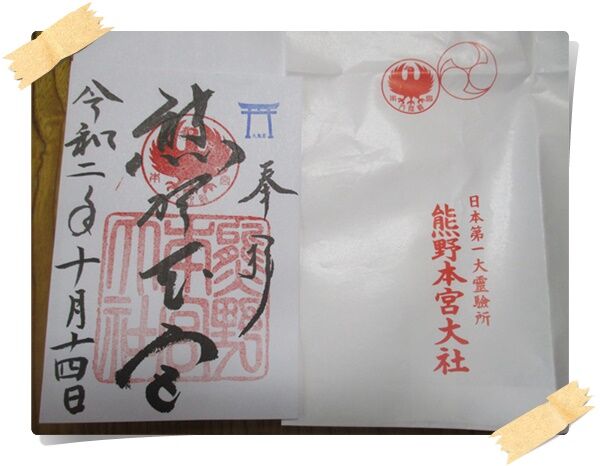 奉拝
熊野本宮
令和二年十月十四日
熊野
本宮
大社
日本第一大霊験所
熊野本宮大社